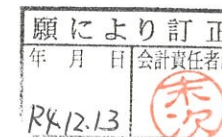 願により訂正
年 月 日 会計責任者
R4.12.13 末次